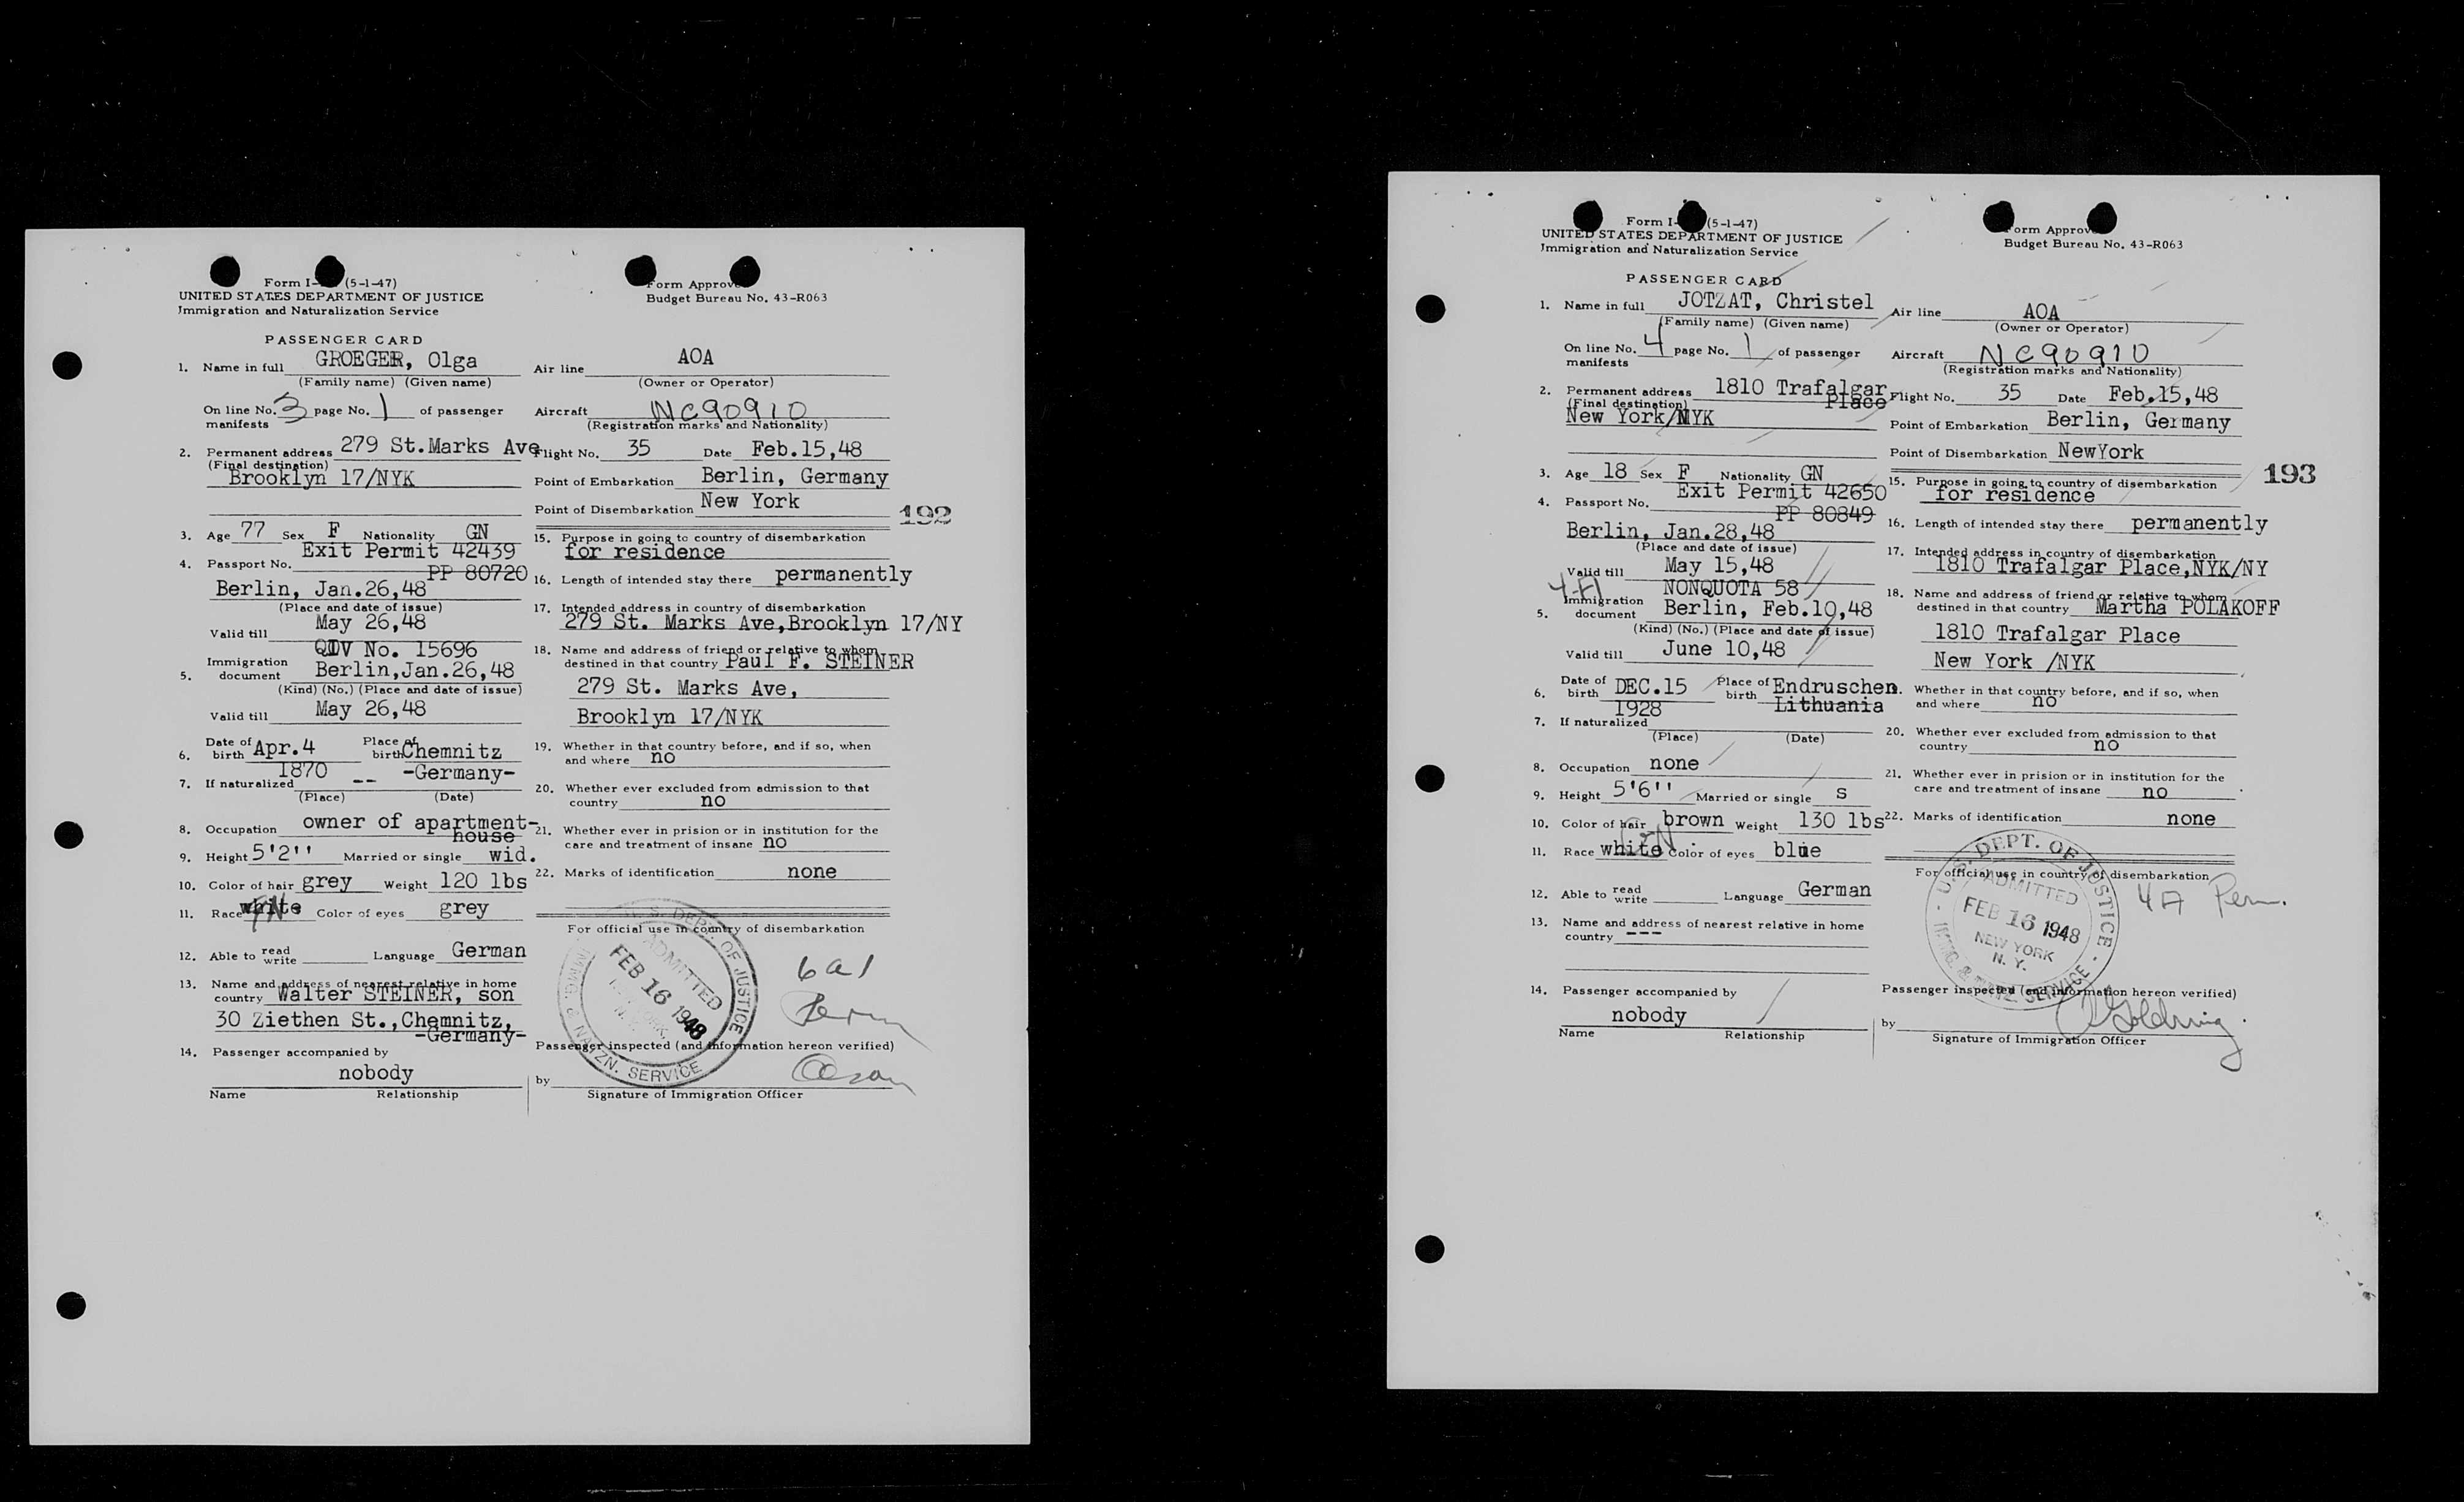 Form I- (5-1-47)
UNITED STATES DEPARTMENT OF JUSTICE
Immigration and Naturalization Service
Form Approve
Budget Bureau No. 43-R063
PASSENGER CARD
1. Name in full GROEGER, Olga
(Family name) (Given name)
On line No. 3 page No. 1 of passenger
manifests
2. Permanent address 279 St.Marks Ave
(Final destination)
Brooklyn 17/NYK
3. Age 77 Sex F Nationality GN
Exit Permit 42439
4. Passport No. PP 80720
Berlin, Jan.26,48
(Place and date of issue)
Valid till May 26,48
QIV No. 15696
Immigration
5. document Berlin,Jan.26,48
(Kind) (No.) (Place and date of issue)
Valid till May 26,48
6. Date of birth Apr.4 Place of birth Chemnitz
1870 -- -Germany-
7. If naturalized
(Place) (Date)
8. Occupation owner of apartment-
house
9. Height 5'2'' Married or single wid.
10. Color of hair grey Weight 120 lbs
11. Race white Color of eyes grey
12. Able to read write Language German
13. Name and address of nearest relative in home
country Walter STEINER, son
30 Ziethen St.,Chemnitz,
-Germany-
14. Passenger accompanied by
nobody
Name Relationship
Air line AOA
(Owner or Operator)
Aircraft NC90910
(Registration marks and Nationality)
Flight No. 35 Date Feb.15,48
Point of Embarkation Berlin, Germany
Point of Disembarkation New York
192
15. Purpose in going to country of disembarkation
for residence
16. Length of intended stay there permanently
17. Intended address in country of disembarkation
279 St. Marks Ave,Brooklyn 17/NY
18. Name and address of friend or relative to whom
destined in that country Paul F. STEINER
279 St. Marks Ave,
Brooklyn 17/NYK
19. Whether in that country before, and if so, when
and where no
20. Whether ever excluded from admission to that
country no
21. Whether ever in prision or in institution for the
care and treatment of insane no
22. Marks of identification none
For official use in country of disembarkation
U. S. DEPT. OF JUSTICE
ADMITTED
FEB 16 1948
IMMIG. & NATZN. SERVICE
6a1
Perm
Passenger inspected (and information hereon verified)
by
Signature of Immigration Officer
Form I- (5-1-47)
UNITED STATES DEPARTMENT OF JUSTICE
Immigration and Naturalization Service
Form Approve
Budget Bureau No. 43-R063
PASSENGER CARD
1. Name in full JOTZAT, Christel
(Family name) (Given name)
On line No. 4 page No. 1 of passenger
manifests
2. Permanent address 1810 Trafalgar
(Final destination) Place
New York/NYK
3. Age 18 Sex F Nationality GN
Exit Permit 42650
4. Passport No. PP 80849
Berlin, Jan.28,48
(Place and date of issue)
Valid till May 15,48
NONQUOTA 58
Immigration
5. document Berlin, Feb.10,48
(Kind) (No.) (Place and date of issue)
Valid till June 10,48
6. Date of birth DEC.15 Place of birth Endruschen.
1928 Lithuania
7. If naturalized
(Place) (Date)
8. Occupation none
9. Height 5'6'' Married or single s
10. Color of hair brown Weight 130 lbs
11. Race white Color of eyes blue
12. Able to read write Language German
13. Name and address of nearest relative in home
country ---
14. Passenger accompanied by
nobody
Name Relationship
Air line AOA
(Owner or Operator)
Aircraft NC90910
(Registration marks and Nationality)
Flight No. 35 Date Feb.15,48
Point of Embarkation Berlin, Germany
Point of Disembarkation NewYork
193
15. Purpose in going to country of disembarkation
for residence
16. Length of intended stay there permanently
17. Intended address in country of disembarkation
1810 Trafalgar Place,NYK/NY
18. Name and address of friend or relative to whom
destined in that country Martha POLAKOFF
1810 Trafalgar Place
New York /NYK
Whether in that country before, and if so, when
and where no
20. Whether ever excluded from admission to that
country no
21. Whether ever in prision or in institution for the
care and treatment of insane no
22. Marks of identification none
For official use in country of disembarkation
U. S. DEPT. OF JUSTICE
ADMITTED
FEB 16 1948
NEW YORK
N. Y.
IMMIG. & NATZ. SERVICE
4A Perm.
Passenger inspected (and information hereon verified)
by
Signature of Immigration Officer